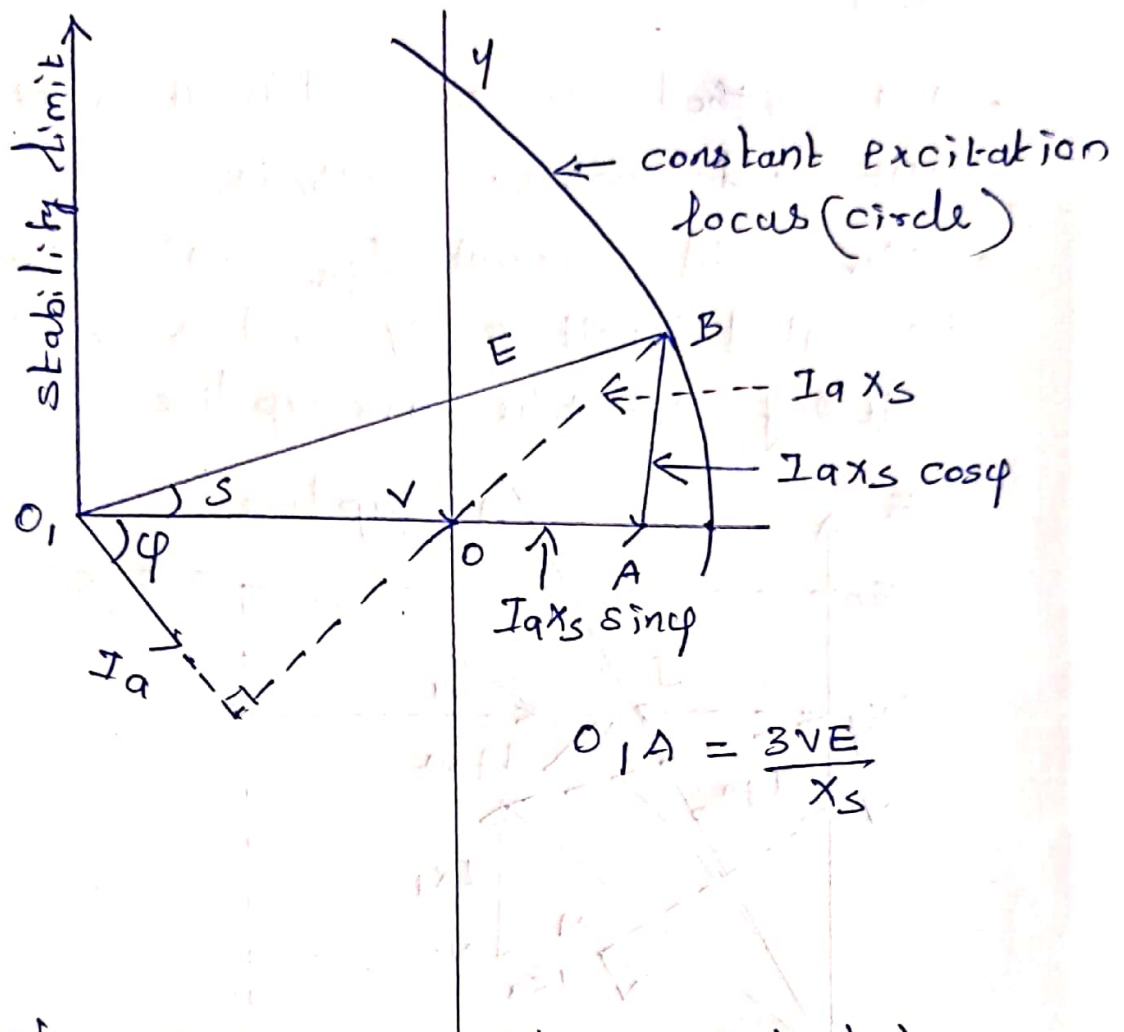 stability limit
y
← constant excitation
locus (circle)
B
E
Ia Xs
Iaxs cosφ
δ
V
O₁
φ
O
A
IaXs sinφ
Ia
O₁A = 3VE / Xs